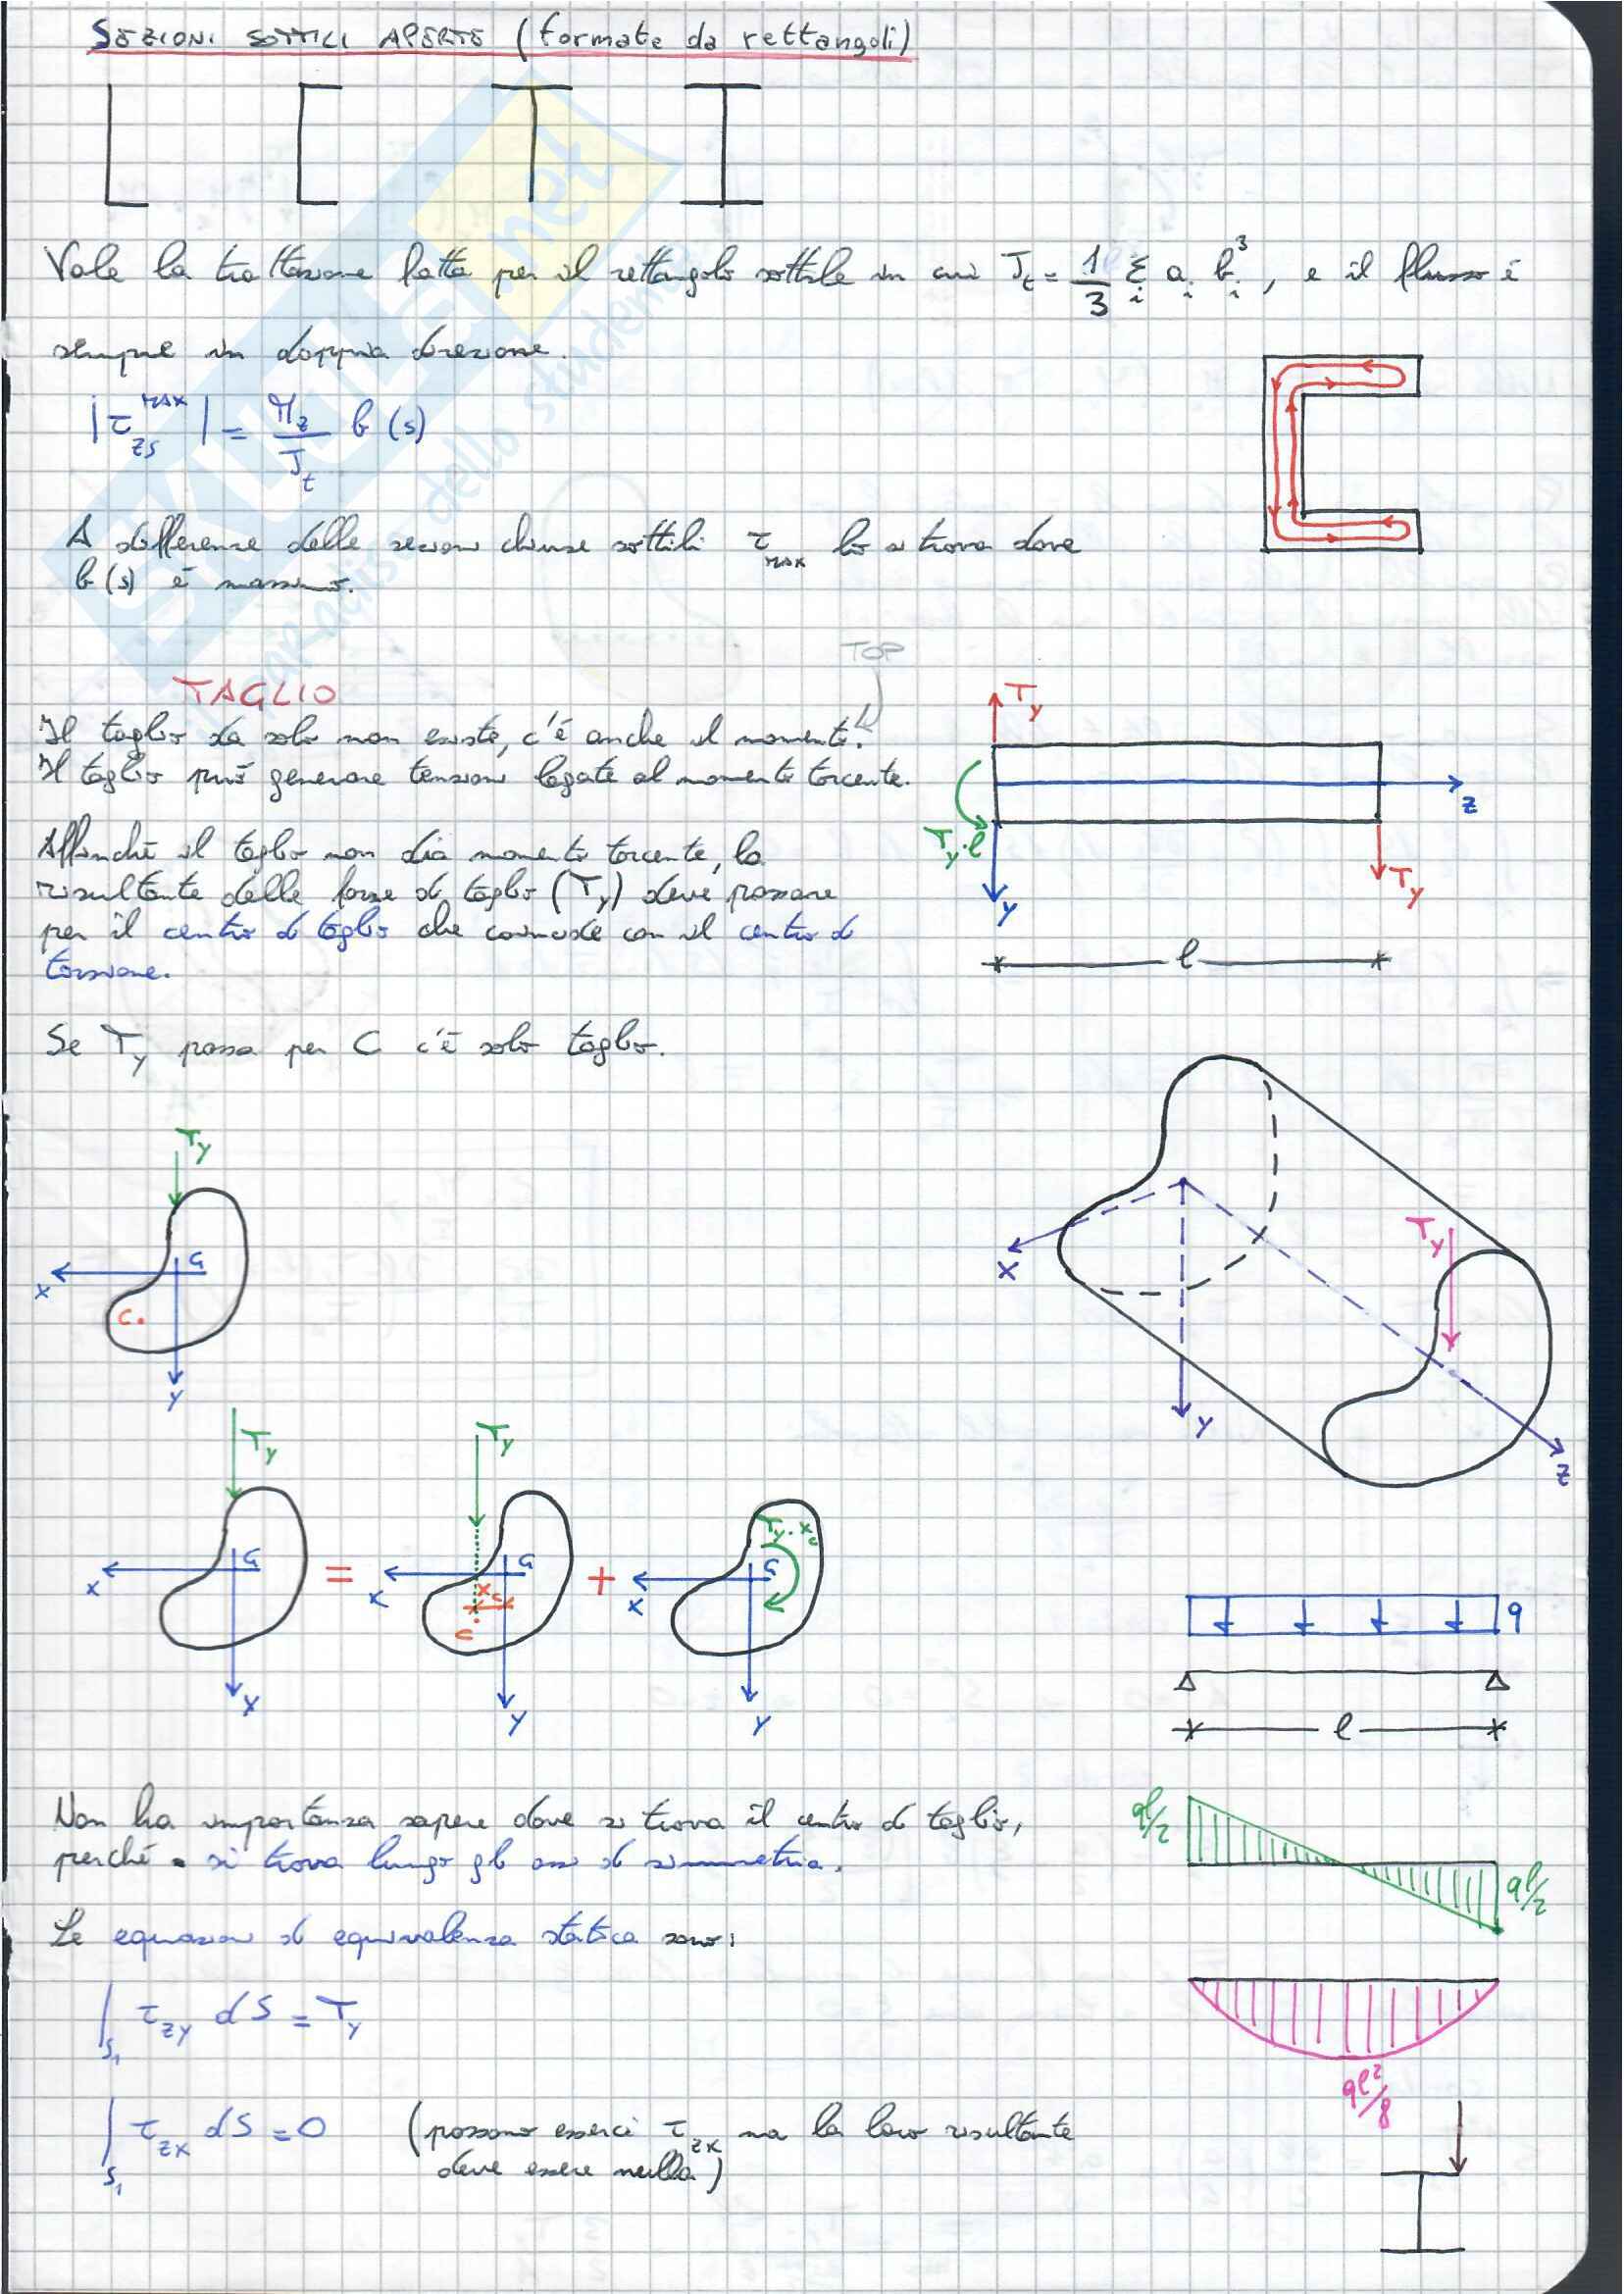 SEZIONI SOTTILI APERTE (formate da rettangoli)
Vale la trattazione fatta per il rettangolo sottile in cui J_t = 1/3 Σ_i a_i b_i^3, e il flusso è
sempre in doppia direzione.
|τ_zs^MAX| = M_z/J_t b(s)
A differenza delle sezioni chiuse sottili τ_MAX lo si trova dove
b(s) è massimo.
TOP
TAGLIO
Il taglio da solo non esiste, c'è anche il momento!
Il taglio può generare tensioni legate al momento torcente.
T_y
z
T_y·l
y
T_y
l
Affinché il taglio non dia momento torcente, la
risultante delle forze di taglio (T_y) deve passare
per il centro di taglio che coincide con il centro di
torsione.
Se T_y passa per C c'è solo taglio.
T_y
G
x
C.
y
T_y
x
y
z
T_y
G
x
x
=
T_y
G
x
x_c
C
y
+
T_y·x_c
G
x
y
q
l
Non ha importanza sapere dove si trova il centro di taglio,
perché si trova lungo gli assi di simmetria.
ql/2
ql/2
Le equazioni di equivalenza statica sono:
∫_S1 τ_zy dS = T_y
ql²/8
∫_S1 τ_zx dS = 0 (possono esserci τ_zx ma la loro risultante
deve essere nulla)
SKUola.net
dello studente